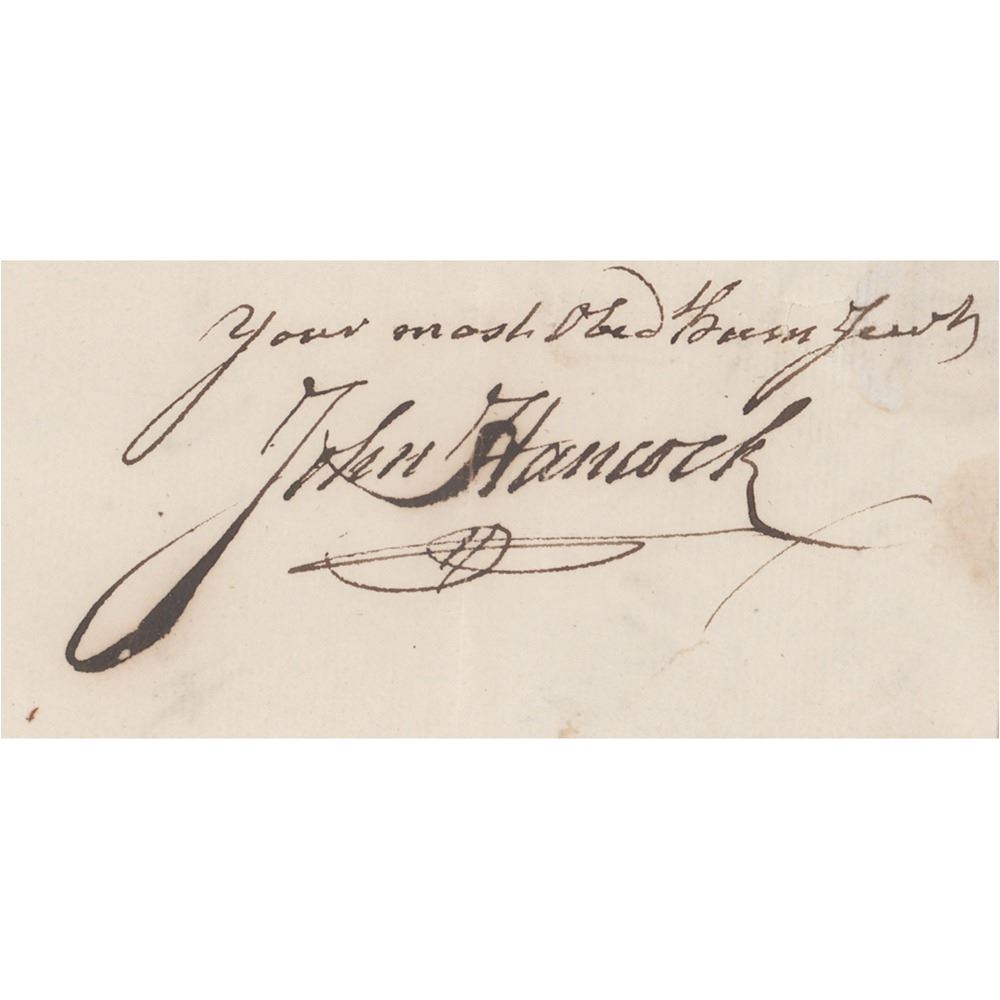 Your most Obed hum Servt
John Hancock